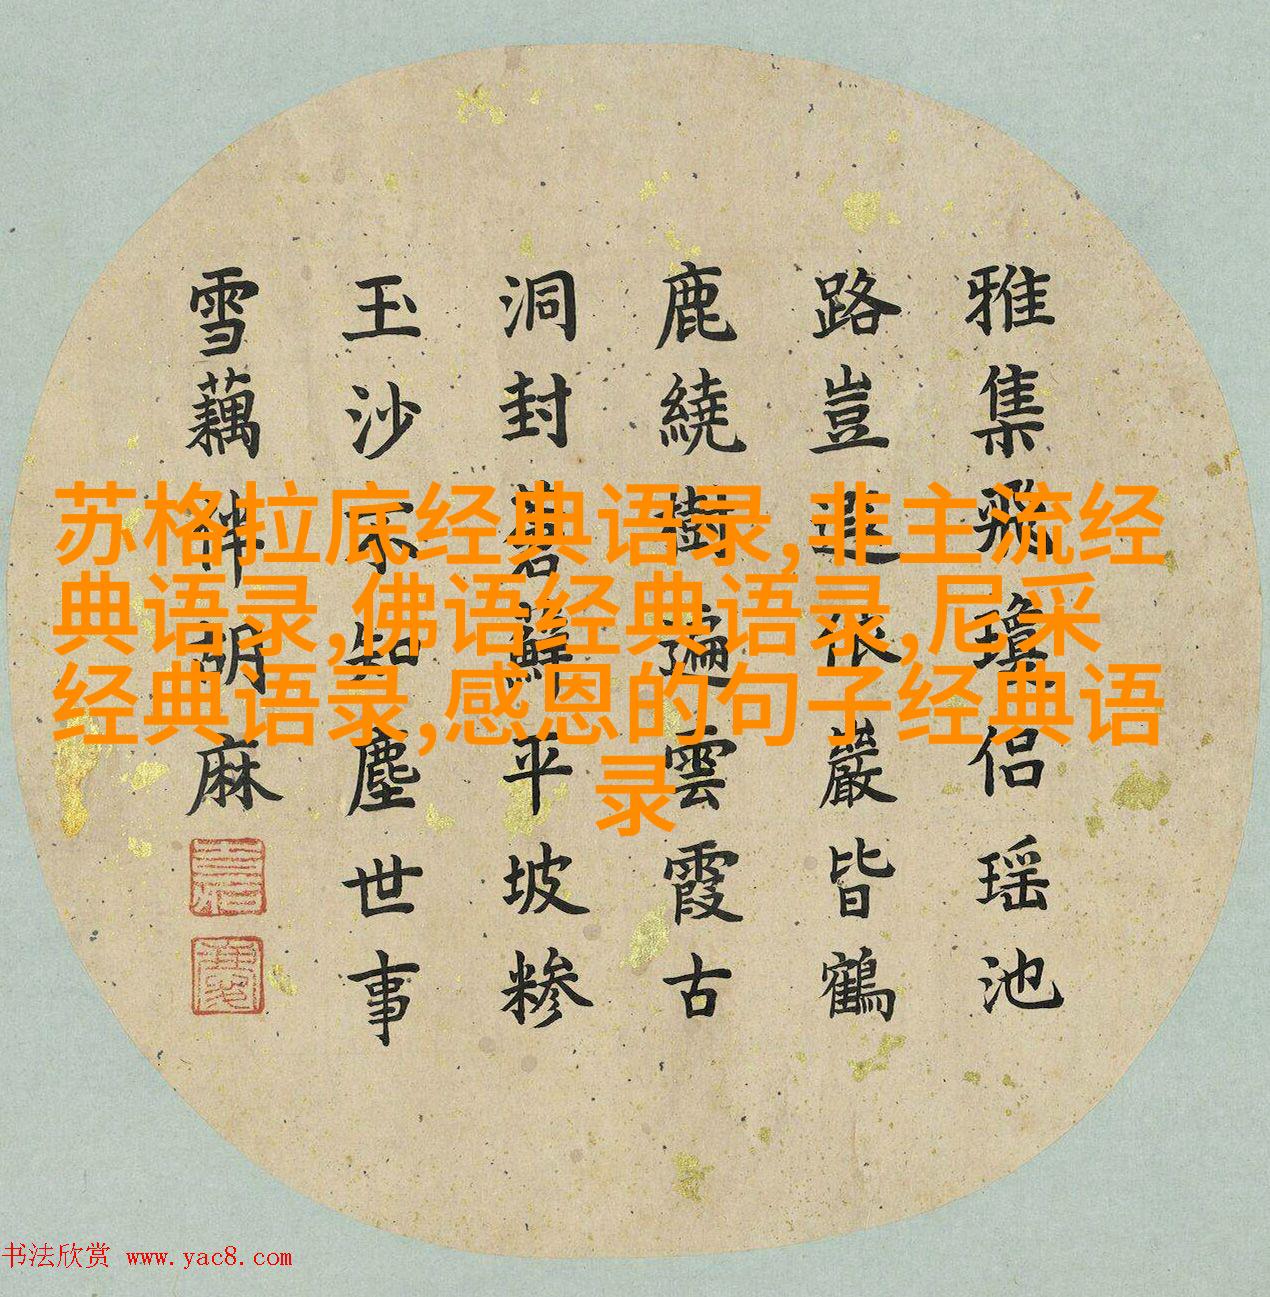 雅集飛瓊侶瑶池
路豈遐依巖皆鶴
鹿繞樹遍雲霞古
洞封蘚平坡糝
玉沙不知塵世事
雪藕胡麻
苏格拉底经典语录,非主流经
典语录,佛语经典语录,尼采
经典语录,感恩的句子经典语
录
书法欣赏 www.yac8.com